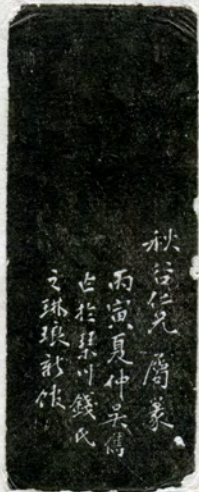 秋谷仁兄 屬篆
丙寅夏仲吳儁
於琹川錢氏
之琳琅新館